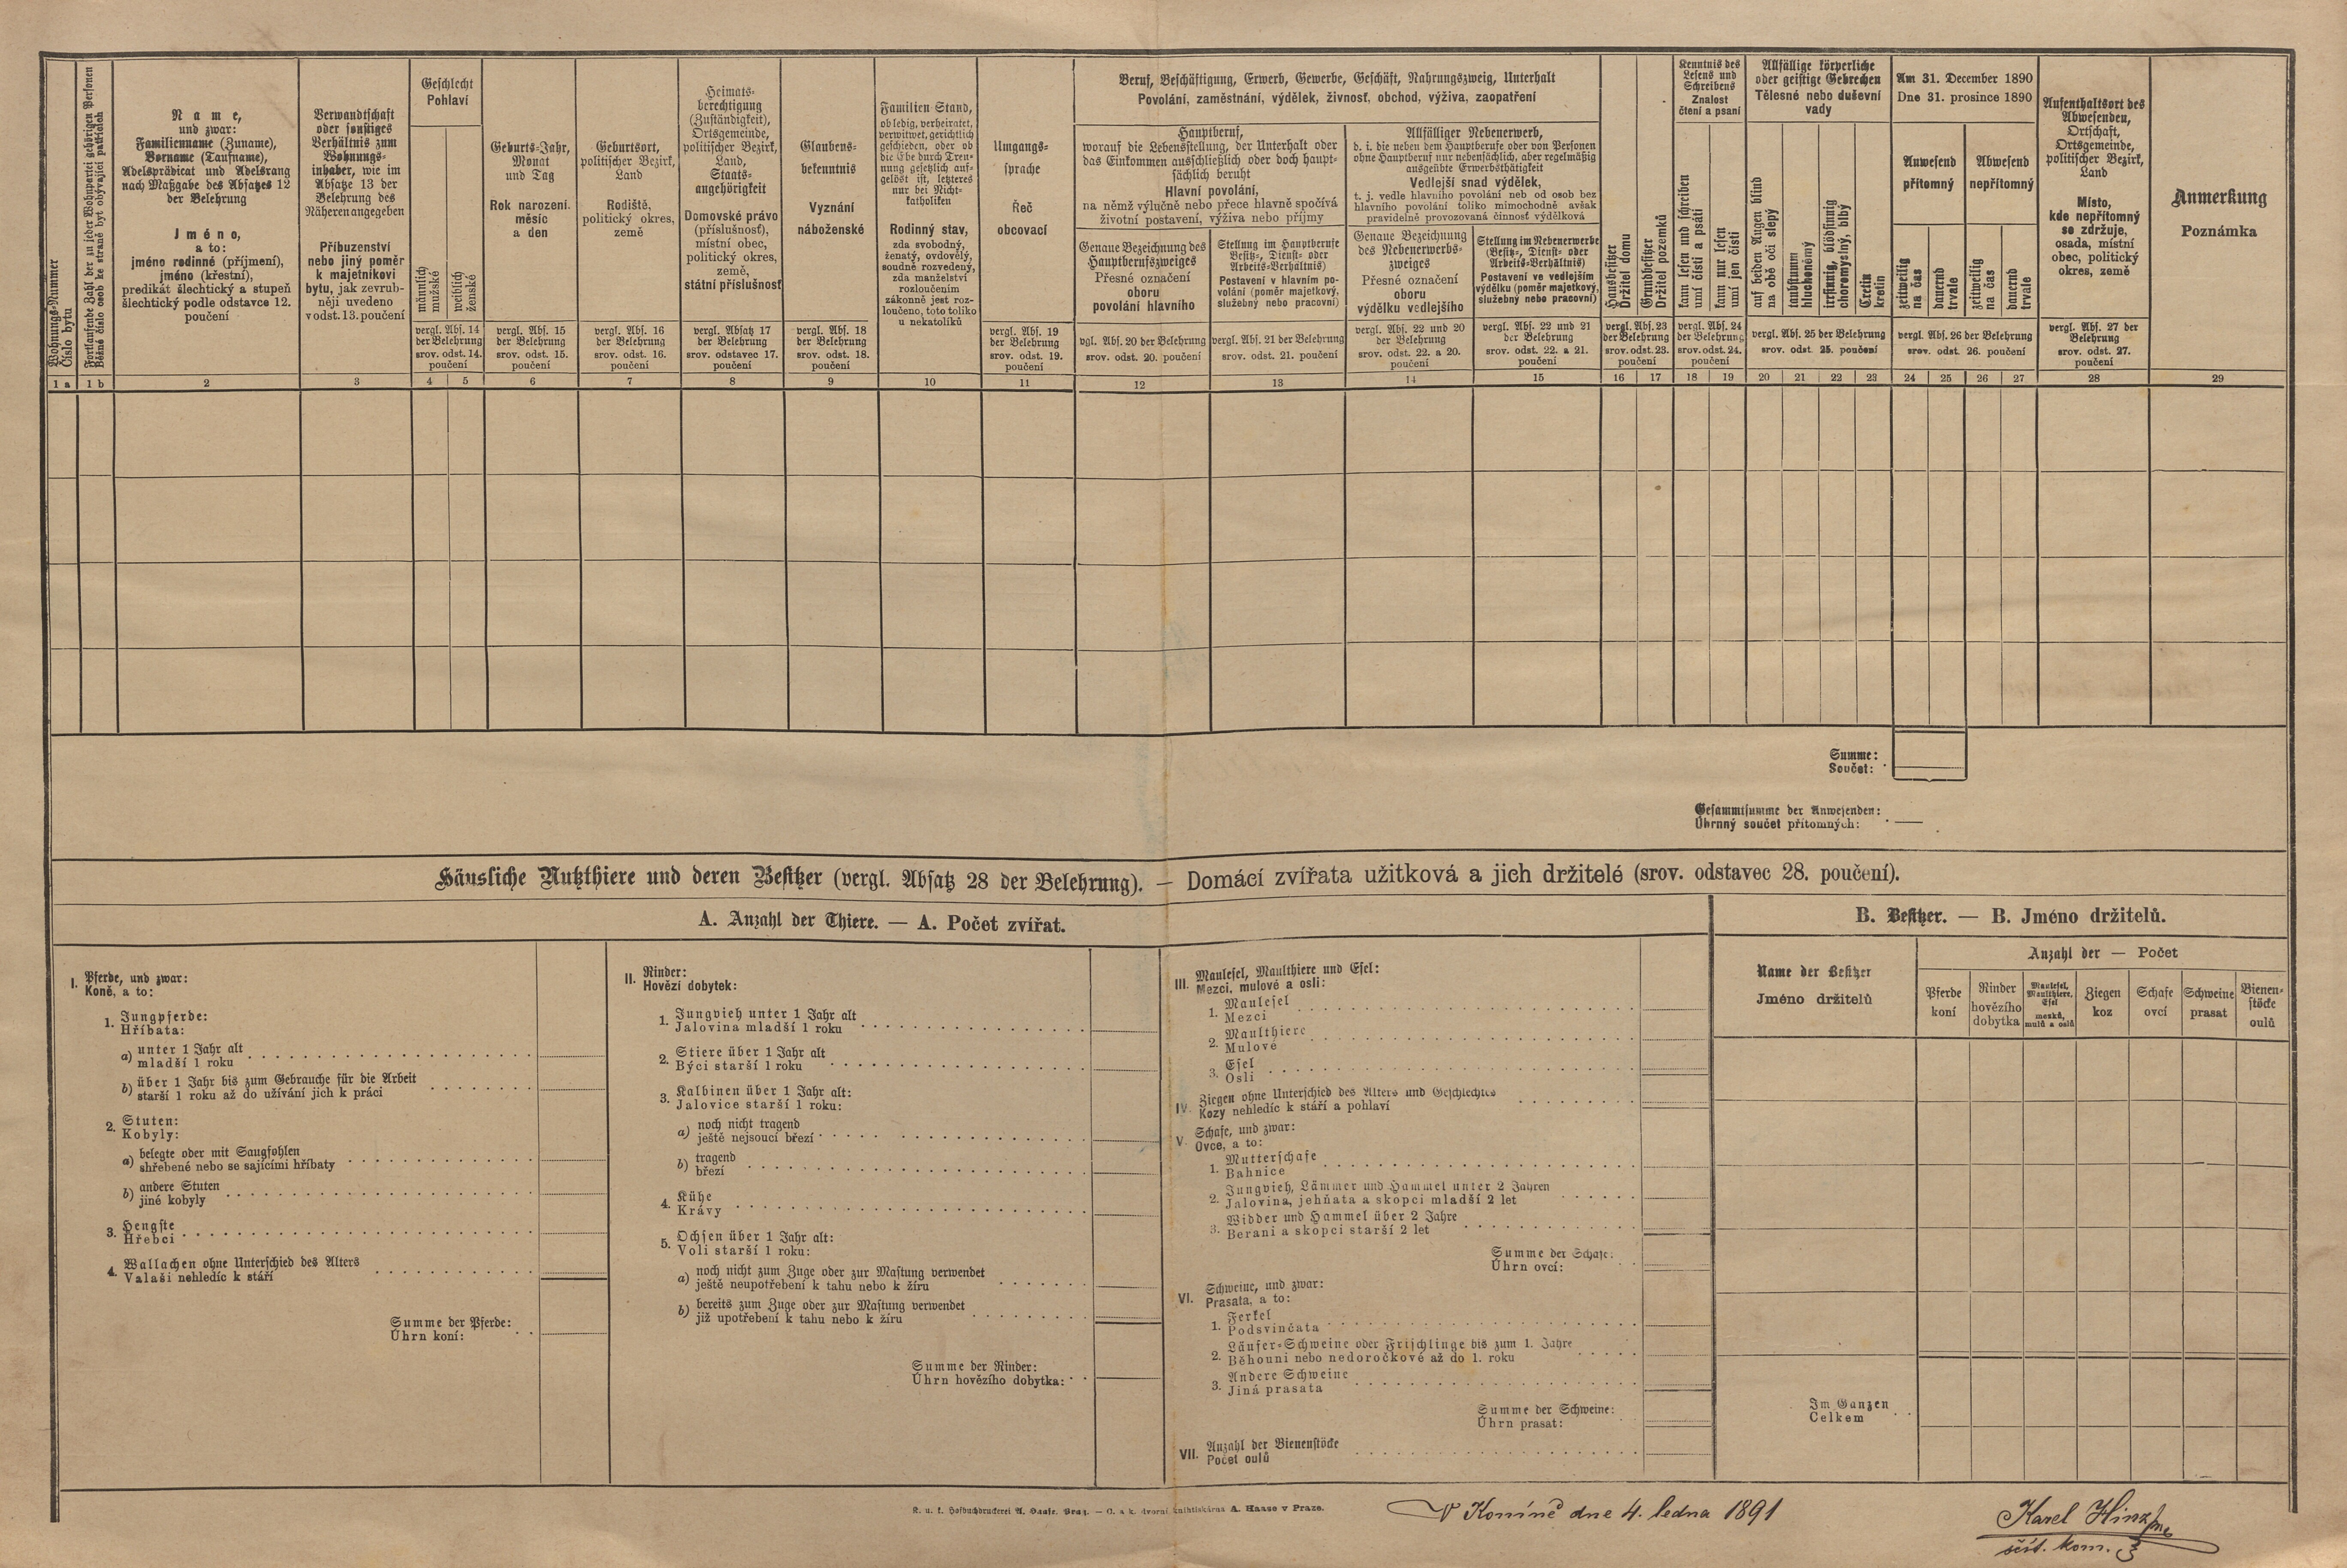 Wohnungs-Nummer
Číslo bytu
Fortlaufende Zahl der zu jeder Wohnpartei gehörigen Personen
Běžné číslo osob ke straně byt obývající patřících
Name,
und zwar:
Familienname (Zuname),
Vorname (Taufname),
Adelsprädicat und Adelsrang
nach Maßgabe des Absatzes 12
der Belehrung
Jméno,
a to:
jméno rodinné (příjmení),
jméno (křestní),
predikát šlechtický a stupeň
šlechtický podle odstavce 12.
poučení
Verwandtschaft
oder sonstiges
Verhältnis zum
Wohnungs-
inhaber, wie im
Absatze 13 der
Belehrung des
Näheren angegeben
Příbuzenství
nebo jiný poměr
k majetníkovi
bytu, jak zevrub-
něji uvedeno
v odst. 13. poučení
Geschlecht
Pohlaví
männlich
mužské
weiblich
ženské
vergl. Abs. 14
der Belehrung
srov. odst. 14.
poučení
Geburts-Jahr,
Monat
und Tag
Rok narození.
měsíc
a den
vergl. Abs. 15
der Belehrung
srov. odst. 15.
poučení
Geburtsort,
politischer Bezirk,
Land
Rodiště,
politický okres,
země
vergl. Abs. 16
der Belehrung
srov. odst. 16.
poučení
Heimats-
berechtigung
(Zuständigkeit),
Ortsgemeinde,
politischer Bezirk,
Land,
Staats-
angehörigkeit
Domovské právo
(příslušnosť),
místní obec,
politický okres,
země,
státní příslušnosť
vergl. Absatz 17
der Belehrung
srov. odstavec 17.
poučení
Glaubens-
bekenntnis
Vyznání
náboženské
vergl. Abs. 18
der Belehrung
srov. odst. 18.
poučení
Familien-Stand,
ob ledig, verheiratet,
verwitwet, gerichtlich
geschieden, oder ob
die Ehe durch Tren-
nung gesetzlich auf-
gelöst ist, letzteres
nur bei Nicht-
katholiken
Rodinný stav,
zda svobodný,
ženatý, ovdovělý,
soudně rozvedený,
zda manželství
rozloučením
zákonně jest roz-
loučeno, toto toliko
u nekatolíků
Umgangs-
sprache
Řeč
obcovací
vergl. Abs. 19
der Belehrung
srov. odst. 19.
poučení
Beruf, Beschäftigung, Erwerb, Gewerbe, Geschäft, Nahrungszweig, Unterhalt
Povolání, zaměstnání, výdělek, živnosť, obchod, výživa, zaopatření
Hauptberuf,
worauf die Lebensstellung, der Unterhalt oder
das Einkommen ausschließlich oder doch haupt-
sächlich beruht
Hlavní povolání,
na němž výlučně nebo přece hlavně spočívá
životní postavení, výživa nebo příjmy
Genaue Bezeichnung des
Hauptberufszweiges
Přesné označení
oboru
povolání hlavního
vgl. Abs. 20 der Belehrung
srov. odst. 20. poučení
Stellung im Hauptberufe
Besitz-, Dienst- oder
Arbeits-Verhältnis)
Postavení v hlavním po-
volání (poměr majetkový,
služebný nebo pracovní)
vergl. Abs. 21 der Belehrung
srov. odst. 21. poučení
Allfälliger Nebenerwerb,
d. i. die neben dem Hauptberufe oder von Personen
ohne Hauptberuf nur nebensächlich, aber regelmäßig
ausgeübte Erwerbsthätigkeit
Vedlejší snad výdělek,
t. j. vedle hlavního povolání neb od osob bez
hlavního povolání toliko mimochodně avšak
pravidelně provozovaná činnosť výdělková
Genaue Bezeichnung
des Nebenerwerbs-
zweiges
Přesné označení
oboru
výdělku vedlejšího
vergl. Abs. 22 und 20
der Belehrung
srov. odst. 22. a 20.
poučení
Stellung im Nebenerwerbe
(Besitz-, Dienst- oder
Arbeits-Verhältnis)
Postavení ve vedlejším
výdělku (poměr majetkový,
služebný nebo pracovní)
vergl. Abs. 22 und 21
der Belehrung
srov. odst. 22. a 21.
poučení
Hausbesitzer
Držitel domu
Grundbesitzer
Držitel pozemků
vergl. Abs. 23
der Belehrung
srov. odst. 23.
poučení
Kenntnis des
Lesens und
Schreibens
Znalost
čtení a psaní
kann lesen und schreiben
umí čísti a psáti
kann nur lesen
umí jen čísti
vergl. Abs. 24
der Belehrung
srov. odst. 24.
poučení
Allfällige körperliche
oder geistige Gebrechen
Tělesné nebo duševní
vady
auf beiden Augen blind
na obě oči slepý
taubstumm
hluchoněmý
irrsinnig, blödsinnig
choromyslný, blbý
Cretin
kretin
vergl. Abs. 25 der Belehrung
srov. odst. 25. poučení
Am 31. December 1890
Dne 31. prosince 1890
Anwesend
přítomný
Abwesend
nepřítomný
zeitweilig
na čas
dauernd
trvale
zeitweilig
na čas
dauernd
trvale
vergl. Abs. 26 der Belehrung
srov. odst. 26. poučení
Aufenthaltsort des
Abwesenden,
Ortschaft,
Ortsgemeinde,
politischer Bezirk,
Land
Místo,
kde nepřítomný
se zdržuje,
osada, místní
obec, politický
okres, země
vergl. Abs. 27 der
Belehrung
srov. odst. 27.
poučení
Anmerkung
Poznámka
1 a 1 b 2 3 4 5 6 7 8 9 10 11 12 13 14 15 16 17 18 19 20 21 22 23 24 25 26 27 28 29
Summe:
Součet:
Gesammtsumme der Anwesenden:
Úhrnný součet přítomných:
Häusliche Nutzthiere und deren Besitzer (vergl. Absatz 28 der Belehrung). — Domácí zvířata užitková a jich držitelé (srov. odstavec 28. poučení).
A. Anzahl der Thiere. — A. Počet zvířat.
I. Pferde, und zwar:
Koně, a to:
1. Jungpferde:
Hříbata:
a) unter 1 Jahr alt
mladší 1 roku
b) über 1 Jahr bis zum Gebrauche für die Arbeit
starší 1 roku až do užívání jich k práci
2. Stuten:
Kobyly:
a) belegte oder mit Saugfohlen
shřebené nebo se sajícími hříbaty
b) andere Stuten
jiné kobyly
3. Hengste
Hřebci
4. Wallachen ohne Unterschied des Alters
Valaši nehledíc k stáří
Summe der Pferde:
Úhrn koní:
II. Rinder:
Hovězí dobytek:
1. Jungvieh unter 1 Jahr alt
Jalovina mladší 1 roku
2. Stiere über 1 Jahr alt
Býci starší 1 roku
3. Kalbinen über 1 Jahr alt:
Jalovice starší 1 roku:
a) noch nicht tragend
ještě nejsoucí březí
b) tragend
březí
4. Kühe
Krávy
5. Ochsen über 1 Jahr alt:
Voli starší 1 roku:
a) noch nicht zum Zuge oder zur Mastung verwendet
ještě neupotřebení k tahu nebo k žíru
b) bereits zum Zuge oder zur Mastung verwendet
již upotřebení k tahu nebo k žíru
Summe der Rinder:
Úhrn hovězího dobytka:
III. Maulesel, Maulthiere und Esel:
Mezci, mulové a osli:
1. Maulesel
Mezci
2. Maulthiere
Mulové
3. Esel
Osli
IV. Ziegen ohne Unterschied des Alters und Geschlechtes
Kozy nehledíc k stáří a pohlaví
V. Schafe, und zwar:
Ovce, a to:
1. Mutterschafe
Bahnice
2. Jungvieh, Lämmer und Hammel unter 2 Jahren
Jalovina, jehňata a skopci mladší 2 let
3. Widder und Hammel über 2 Jahre
Berani a skopci starší 2 let
Summe der Schafe:
Úhrn ovcí:
VI. Schweine, und zwar:
Prasata, a to:
1. Ferkel
Podsvinčata
2. Läufer-Schweine oder Frischlinge bis zum 1. Jahre
Běhouni nebo nedoročkové až do 1. roku
3. Andere Schweine
Jiná prasata
Summe der Schweine:
Úhrn prasat:
VII. Anzahl der Bienenstöcke
Počet oulů
B. Besitzer. — B. Jméno držitelů.
Name der Besitzer
Jméno držitelů
Anzahl der — Počet
Pferde
koní
Rinder
hovězího
dobytka
Maulesel,
Maulthiere,
Esel
mezků,
mulů a oslů
Ziegen
koz
Schafe
ovcí
Schweine
prasat
Bienen-
stöcke
oulů
Im Ganzen
Celkem
K. u. k. Hofbuchdruckerei A. Haase, Prag. — C. a k. dvorní knihtiskárna A. Haase v Praze.
V Komíně dne 4. ledna 1891
Karel
sčít. kom.